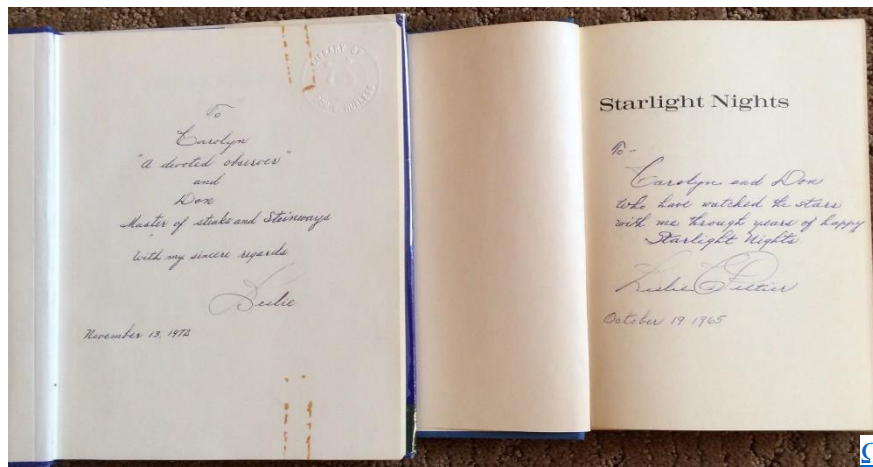 To
Carolyn
"A devoted observer"
and
Don
Master of steaks and Steinways
With my sincere regards
Leslie
November 13, 1972
LIBRARY OF
Starlight Nights
To-
Carolyn and Don
who have watched the stars
with me through years of happy
Starlight Nights
Leslie C Peltier
October 19 1965